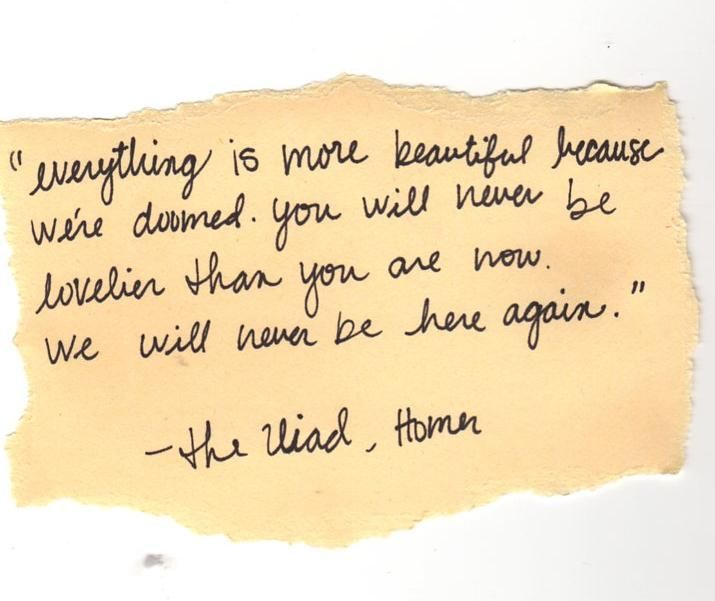 "everything is more beautiful because
we're doomed. you will never be
lovelier than you are now.
we will never be here again."
- the Iliad, Homer